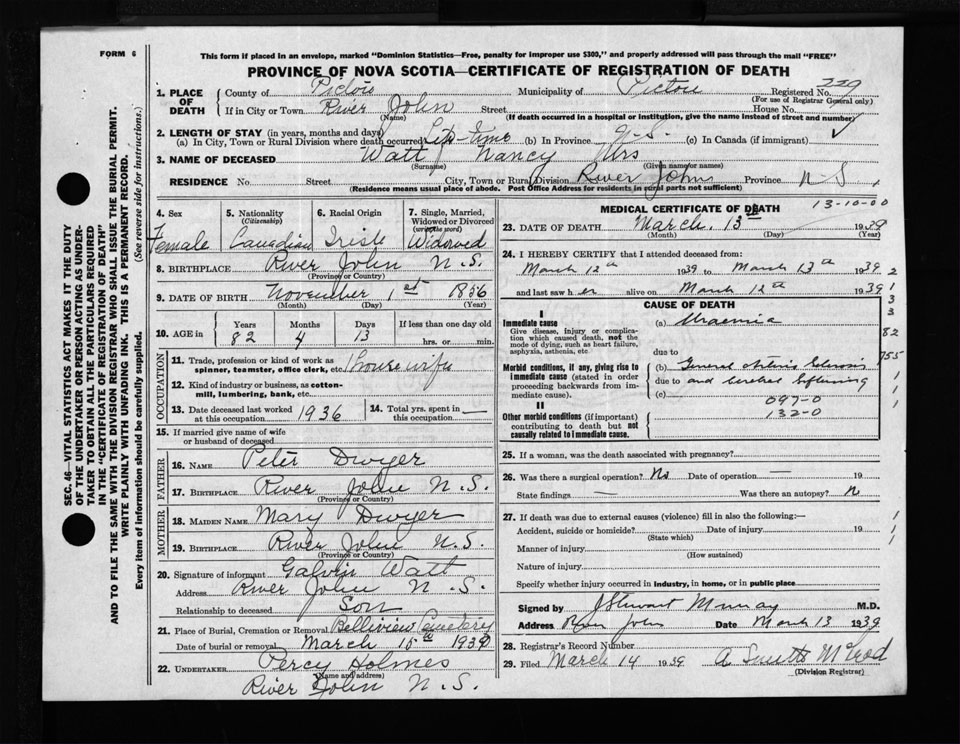 FORM 6
This form if placed in an envelope, marked "Dominion Statistics—Free, penalty for improper use $300," and properly addressed will pass through the mail "FREE"
PROVINCE OF NOVA SCOTIA—CERTIFICATE OF REGISTRATION OF DEATH
SEC. 46—VITAL STATISTICS ACT MAKES IT THE DUTY
OF THE UNDERTAKER OR PERSON ACTING AS UNDER-
TAKER TO OBTAIN ALL THE PARTICULARS REQUIRED
IN THE "CERTIFICATE OF REGISTRATION OF DEATH"
AND TO FILE THE SAME WITH THE DIVISION REGISTRAR WHO SHALL ISSUE THE BURIAL PERMIT.
WRITE PLAINLY WITH UNFADING INK. THIS IS A PERMANENT RECORD.
Every item of information should be carefully supplied. (See reverse side for instructions.)
1. PLACE OF DEATH County of Pictou Municipality of Pictou Registered No. 239
(For use of Registrar General only)
If in City or Town River John Street House No.
(Name) (If death occurred in a hospital or institution, give the name instead of street and number)
2. LENGTH OF STAY (in years, months and days)
(a) In City, Town or Rural Division where death occurred Life-time (b) In Province N.S. (c) In Canada (if immigrant)
3. NAME OF DECEASED Watt Nancy Mrs
(Surname) (Given name or names)
RESIDENCE No. Street City, Town or Rural Division River John Province N.S.
(Residence means usual place of abode. Post Office Address for residents in rural parts not sufficient)
4. Sex Female
5. Nationality (Citizenship) Canadian
6. Racial Origin Irish
7. Single, Married, Widowed or Divorced (write the word) Widowed
8. BIRTHPLACE River John N.S.
(Province or Country)
9. DATE OF BIRTH November 1st 1856
(Month) (Day) (Year)
10. AGE in Years Months Days If less than one day old
82 4 13 hrs. or min.
OCCUPATION
11. Trade, profession or kind of work as spinner, teamster, office clerk, etc. Housewife
12. Kind of industry or business, as cotton-mill, lumbering, bank, etc.
13. Date deceased last worked at this occupation 1936 14. Total yrs. spent in this occupation —
15. If married give name of wife or husband of deceased
FATHER
16. NAME Peter Dwyer
17. BIRTHPLACE River John N.S.
(Province or Country)
MOTHER
18. MAIDEN NAME Mary Dwyer
19. BIRTHPLACE River John N.S.
(Province or Country)
20. Signature of informant Galvin Watt
Address River John N.S.
Relationship to deceased Son
21. Place of Burial, Cremation or Removal Belleview Cemetery
Date of burial or removal March 15th 1939
22. UNDERTAKER Percy Holmes
(Name and address)
River John N.S.
MEDICAL CERTIFICATE OF DEATH
13-10-00
23. DATE OF DEATH March 13th 1939
(Month) (Day) (Year)
24. I HEREBY CERTIFY that I attended deceased from:
March 12th 1939 to March 13th 1939
and last saw her alive on March 12th 1939
CAUSE OF DEATH
I
Immediate cause
Give disease, injury or complication which caused death, not the mode of dying, such as heart failure, asphyxia, asthenia, etc.
(a) Uraemia
due to
Morbid conditions, if any, giving rise to immediate cause (stated in order proceeding backwards from immediate cause).
(b) General arterio sclerosis
due to and cerebral softening
(c) 097-0
132-0
II
Other morbid conditions (if important) contributing to death but not causally related to immediate cause.
2
1
3
3
82
755
1
1
1
25. If a woman, was the death associated with pregnancy?
26. Was there a surgical operation? No Date of operation — 19
State findings — Was there an autopsy? N
27. If death was due to external causes (violence) fill in also the following:—
Accident, suicide or homicide? Date of injury 19
(State which)
Manner of injury
(How sustained)
Nature of injury
Specify whether injury occurred in industry, in home, or in public place
1
1
1
Signed by J Stewart Murray M.D.
Address River John Date March 13 1939
28. Registrar's Record Number
29. Filed March 14 1939
(Division Registrar)